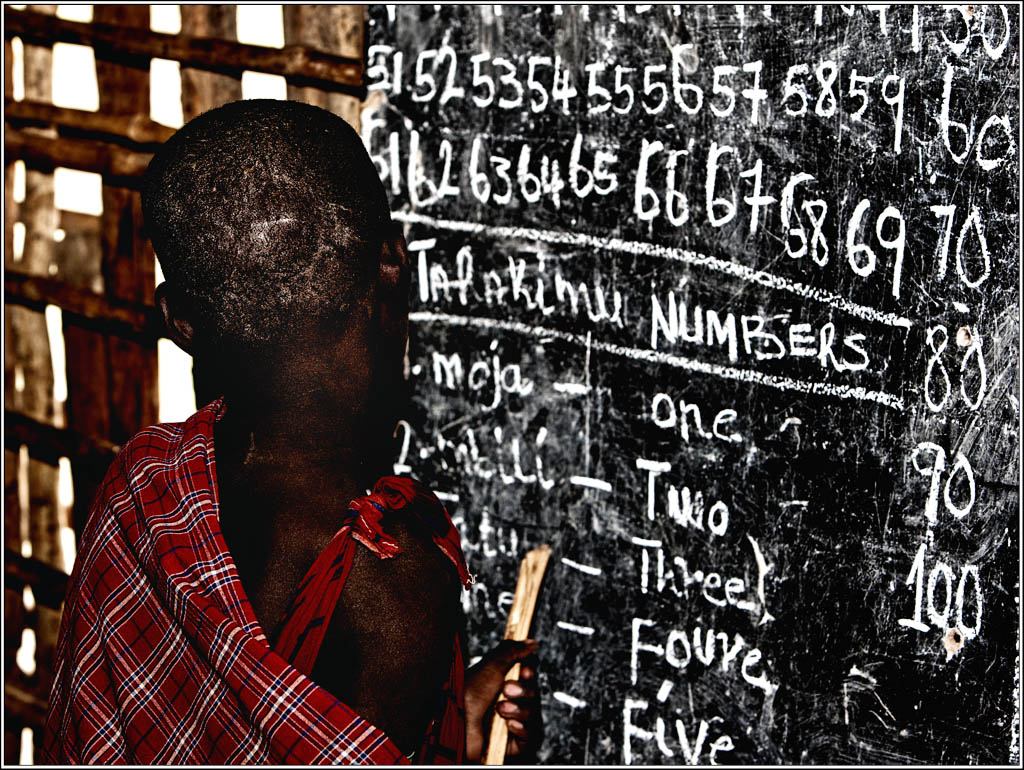 51 52 53 54 55 56 57 58 59 60
61 62 63 64 65 66 67 68 69 70
Tarakimu NUMBERS
80
moja - one -
2 - mbili - Two -
90
- Three
100
- Foure
- Five